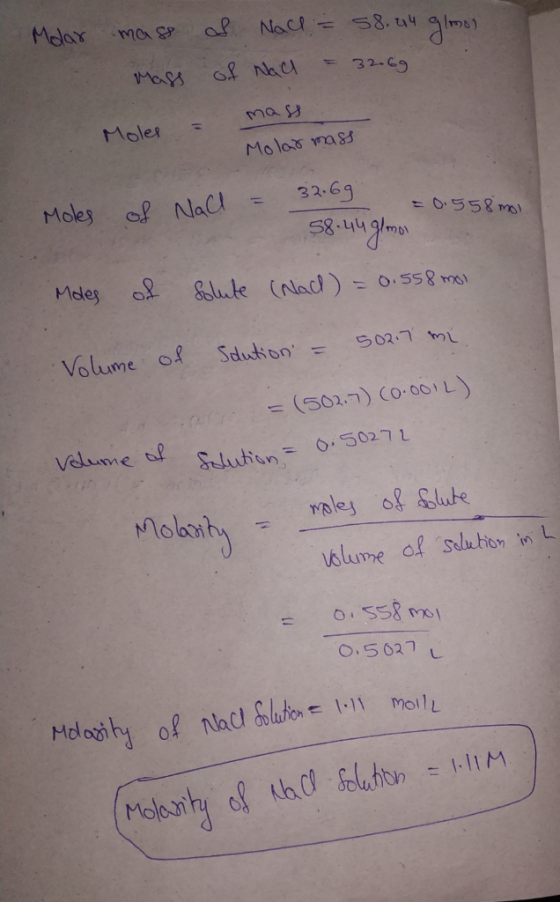 Molar mass of NaCl = 58.44 g/mol
Mass of NaCl = 32.6g
Moles = mass / Molar mass
Moles of NaCl = 32.6g / 58.44 g/mol = 0.558 mol
Moles of Solute (NaCl) = 0.558 mol
Volume of Solution = 502.7 mL
= (502.7) (0.001L)
Volume of Solution = 0.5027 L
Molarity = moles of Solute / Volume of solution in L
= 0.558 mol / 0.5027 L
Molarity of NaCl Solution = 1.11 mol/L
Molarity of NaCl Solution = 1.11 M